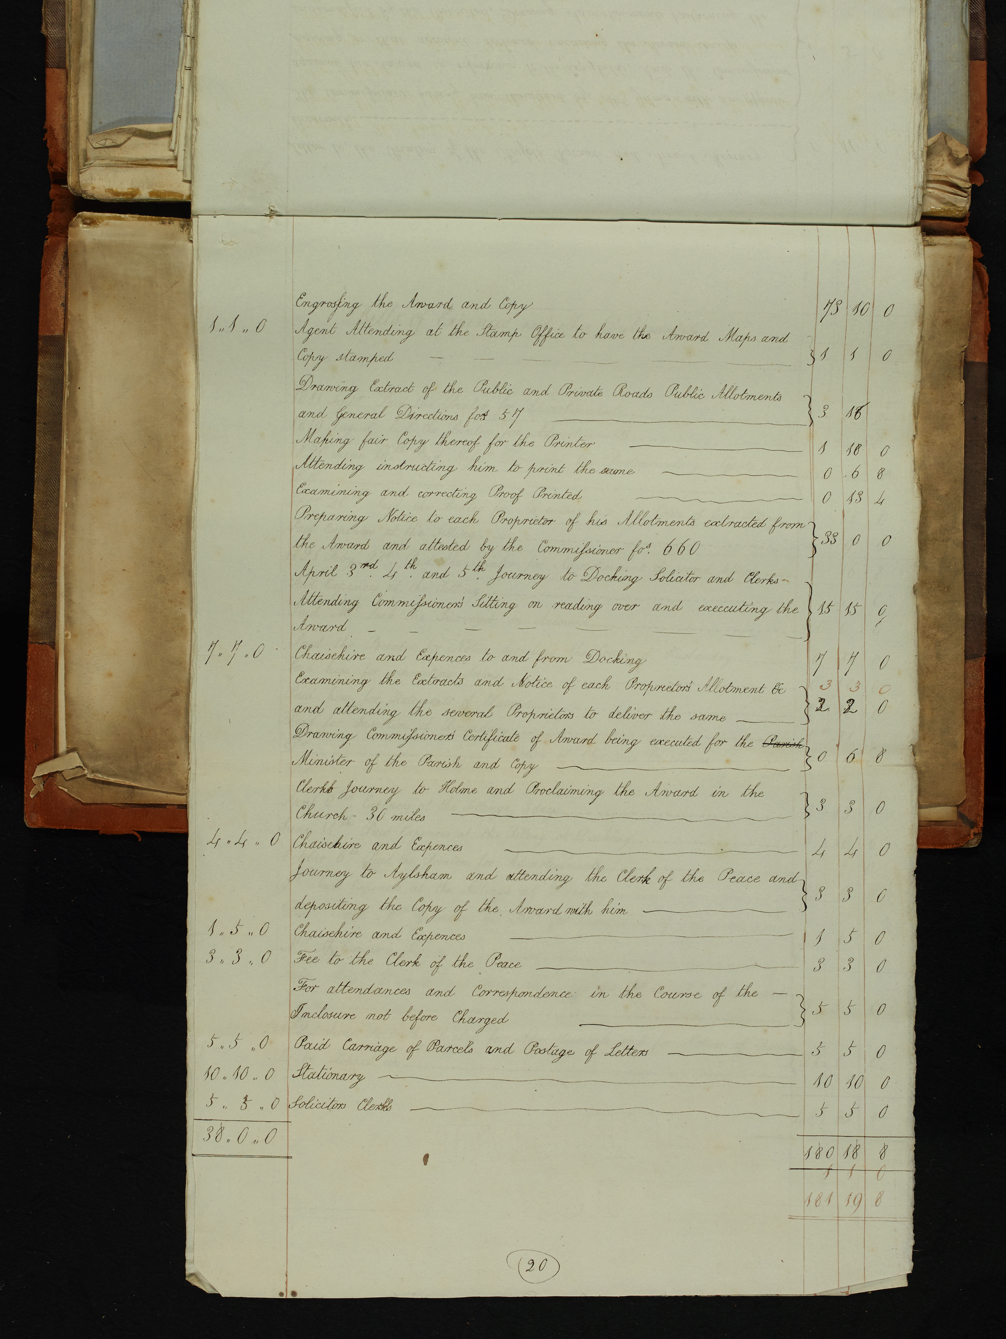 Engrossing the Award and Copy 73 10 0
1 „ 1 „ 0 Agent Attending at the Stamp Office to have the Award Maps and
Copy stamped 1 1 0
Drawing Extract of the Public and Private Roads Public Allotments
and General Directions fos 57 3 16
Making fair Copy thereof for the Printer 1 18 0
Attending instructing him to print the same 0 6 8
Examining and correcting Proof Printed 0 13 4
Preparing Notice to each Proprietor of his Allotments extracted from
the Award and attested by the Commissioner fos. 660 33 0 0
April 3rd. 4th. and 5th. Journey to Docking Solicitor and Clerks -
Attending Commissioners Sitting on reading over and executing the
Award 15 15 0
7 „ 7 „ 0 Chaisehire and Expences to and from Docking 7 7 0
Examining the Extracts and Notice of each Proprietors Allotment &c 3 3 0
and attending the several Proprietors to deliver the same 2 2 0
Drawing Commissioners Certificate of Award being executed for the Parish
Minister of the Parish and Copy 0 6 8
Clerks Journey to Holme and Proclaiming the Award in the
Church - 36 miles 3 3 0
4 „ 4 „ 0 Chaisehire and Expences 4 4 0
Journey to Aylsham and attending the Clerk of the Peace and
depositing the Copy of the Award with him 3 3 0
1 „ 5 „ 0 Chaisehire and Expences 1 5 0
3 „ 3 „ 0 Fee to the Clerk of the Peace 3 3 0
For attendances and Correspondence in the Course of the —
Inclosure not before Charged 5 5 0
5 „ 5 „ 0 Paid Carriage of Parcels and Postage of Letters 5 5 0
10 „ 10 „ 0 Stationary 10 10 0
5 „ 5 „ 0 Solicitors Clerks 5 5 0
38 „ 0 „ 0
180 18 8
1 1 0
181 19 8
20